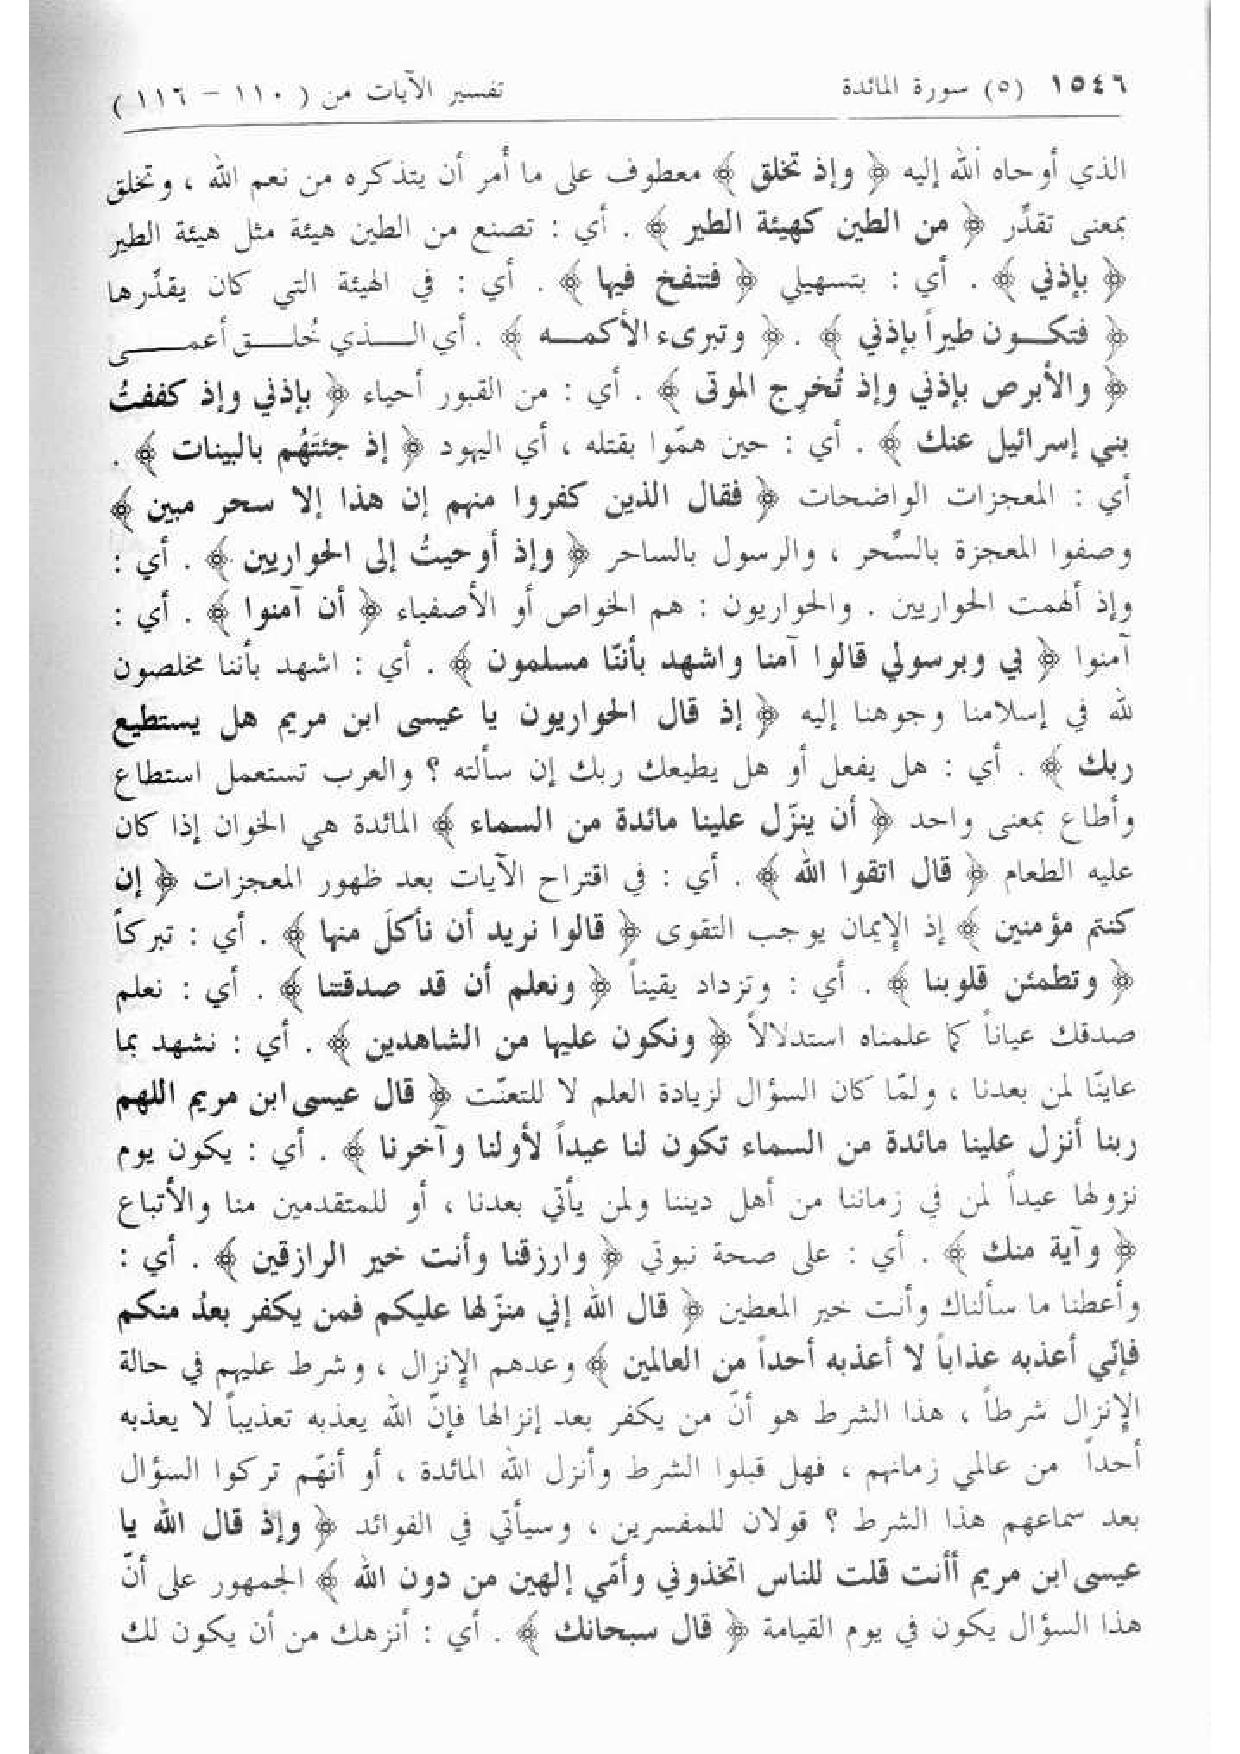 ١٥٤٦ (٥) سورة المائدة تفسير الآيات من (١١٠ - ١١٦)
الذي أوحاه الله إليه ﴿ وإذ تخلق ﴾ معطوف على ما أُمر أن يتذكره من نعم الله ، وتخلق
بمعنى تقدِّر ﴿ من الطين كهيئة الطير ﴾ . أي : تصنع من الطين هيئة مثل هيئة الطير
﴿ بإذني ﴾ . أي : بتسهيلي ﴿ فتنفخ فيها ﴾ . أي : في الهيئة التي كان يقدِّرها
﴿ فتكون طيراً بإذني ﴾ . ﴿ وتبرىء الأكمه ﴾ . أي الذي خُلق أعمى
﴿ والأبرص بإذني وإذ تُخرِج الموتى ﴾ . أي : من القبور أحياء ﴿ بإذني وإذ كففتُ
بني إسرائيل عنك ﴾ . أي : حين همّوا بقتله ، أي اليهود ﴿ إذ جئتَهُم بالبينات ﴾ .
أي : المعجزات الواضحات ﴿ فقال الذين كفروا منهم إن هذا إلا سحر مبين ﴾
وصفوا المعجزة بالسِّحر ، والرسول بالساحر ﴿ وإذ أوحيتُ إلى الحواريين ﴾ . أي :
وإذ ألهمت الحواريين . والحواريون : هم الخواص أو الأصفياء ﴿ أن آمنوا ﴾ . أي :
آمنوا ﴿ بي وبرسولي قالوا آمنا واشهد بأننّا مسلمون ﴾ . أي : اشهد بأننا مخلصون
لله في إسلامنا وجوهنا إليه ﴿ إذ قال الحواريون يا عيسى ابن مريم هل يستطيع
ربك ﴾ . أي : هل يفعل أو هل يطيعك ربك إن سألته ؟ والعرب تستعمل استطاع
وأطاع بمعنى واحد ﴿ أن ينزّل علينا مائدة من السماء ﴾ المائدة هي الخوان إذا كان
عليه الطعام ﴿ قال اتقوا الله ﴾ . أي : في اقتراح الآيات بعد ظهور المعجزات ﴿ إن
كنتم مؤمنين ﴾ إذ الإيمان يوجب التقوى ﴿ قالوا نريد أن نأكلَ منها ﴾ . أي : تبركاً
﴿ وتطمئن قلوبنا ﴾ . أي : وتزداد يقيناً ﴿ ونعلم أن قد صدقتنا ﴾ . أي : نعلم
صدقك عياناً كما علمناه استدلالاً ﴿ ونكون عليها من الشاهدين ﴾ . أي : نشهد بما
عاينّا لمن بعدنا ، ولمّا كان السؤال لزيادة العلم لا للتعنّت ﴿ قال عيسى ابن مريم اللهم
ربنا أنزل علينا مائدة من السماء تكون لنا عيداً لأولنا وآخرنا ﴾ . أي : يكون يوم
نزولها عيداً لمن في زماننا من أهل ديننا ولمن يأتي بعدنا ، أو للمتقدمين منا والأتباع
﴿ وآية منك ﴾ . أي : على صحة نبوتي ﴿ وارزقنا وأنت خير الرازقين ﴾ . أي :
وأعطنا ما سألناك وأنت خير المعطين ﴿ قال الله إني منزّلها عليكم فمن يكفر بعدُ منكم
فإنّي أعذبه عذاباً لا أعذبه أحداً من العالمين ﴾ وعدهم الإنزال ، وشرط عليهم في حالة
الإنزال شرطاً ، هذا الشرط هو أنّ من يكفر بعد إنزالها فإنّ الله يعذبه تعذيباً لا يعذبه
أحداً من عالمي زمانهم ، فهل قبلوا الشرط وأنزل الله المائدة ، أو أنهّم تركوا السؤال
بعد سماعهم هذا الشرط ؟ قولان للمفسرين ، وسيأتي في الفوائد ﴿ وإذ قال الله يا
عيسى ابن مريم أأنت قلت للناس اتخذوني وأمّي إلهين من دون الله ﴾ الجمهور على أنّ
هذا السؤال يكون في يوم القيامة ﴿ قال سبحانك ﴾ . أي : أنزهك من أن يكون لك